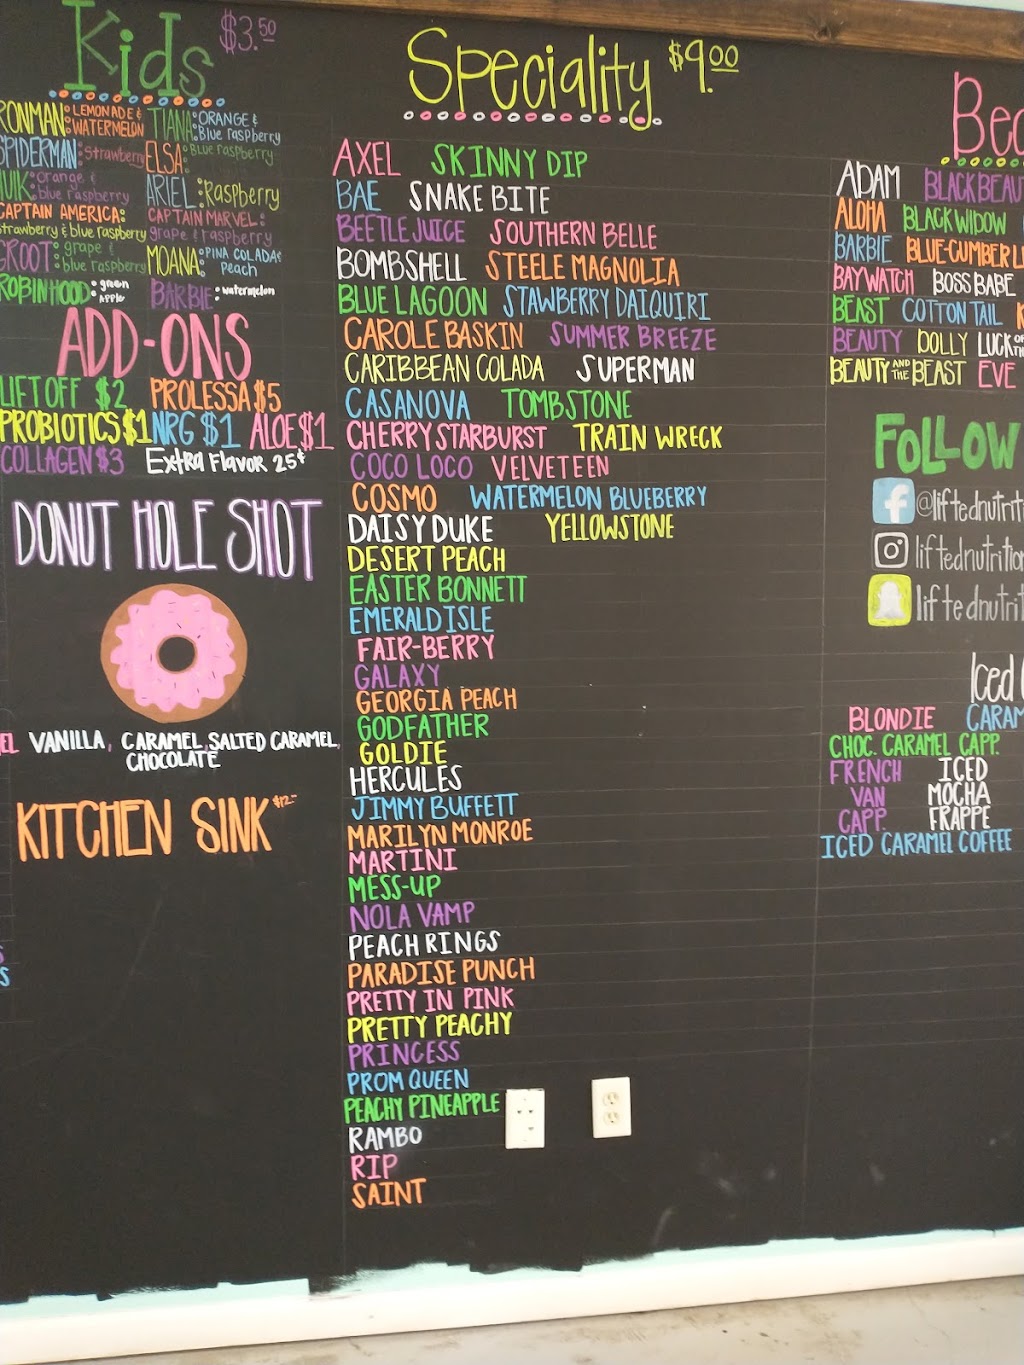 Kids $3.50
RONMAN: LEMONADE & WATERMELON TIANA: ORANGE & Blue raspberry
SPIDERMAN: Strawberry ELSA: Blue raspberry
HULK: Orange & blue raspberry ARIEL: Raspberry
CAPTAIN AMERICA: strawberry & blue raspberry CAPTAIN MARVEL: grape & raspberry
GROOT: grape & blue raspberry MOANA: PINA COLADA & Peach
ROBINHOOD: green Apple BARBIE: watermelon
ADD-ONS
LIFT OFF $2 PROLESSA $5
PROBIOTICS $1 NRG $1 ALOE $1
COLLAGEN $3 Extra Flavor 25¢
DONUT HOLE SHOT
EL VANILLA, CARAMEL, SALTED CARAMEL,
CHOCOLATE
KITCHEN SINK $12-
S
S
Speciality $9.00
AXEL SKINNY DIP
BAE SNAKE BITE
BEETLEJUICE SOUTHERN BELLE
BOMBSHELL STEELE MAGNOLIA
BLUE LAGOON STAWBERRY DAIQUIRI
CAROLE BASKIN SUMMER BREEZE
CARIBBEAN COLADA SUPERMAN
CASANOVA TOMBSTONE
CHERRY STARBURST TRAIN WRECK
COCO LOCO VELVETEEN
COSMO WATERMELON BLUEBERRY
DAISY DUKE YELLOWSTONE
DESERT PEACH
EASTER BONNETT
EMERALD ISLE
FAIR-BERRY
GALAXY
GEORGIA PEACH
GODFATHER
GOLDIE
HERCULES
JIMMY BUFFETT
MARILYN MONROE
MARTINI
MESS-UP
NOLA VAMP
PEACH RINGS
PARADISE PUNCH
PRETTY IN PINK
PRETTY PEACHY
PRINCESS
PROM QUEEN
PEACHY PINEAPPLE
RAMBO
RIP
SAINT
Bea
ADAM BLACK BEAU
ALOHA BLACK WIDOW
BARBIE BLUE-CUMBER LI
BAYWATCH BOSS BABE
BEAST COTTON TAIL
BEAUTY DOLLY LUCK OF THE
BEAUTY AND THE BEAST EVE
FOLLOW
@liftednutrit
liftednutrition
liftednutrit
Iced
BLONDIE CARAM
CHOC. CARAMEL CAPP.
FRENCH VAN CAPP. ICED MOCHA FRAPPE
ICED CARAMEL COFFEE